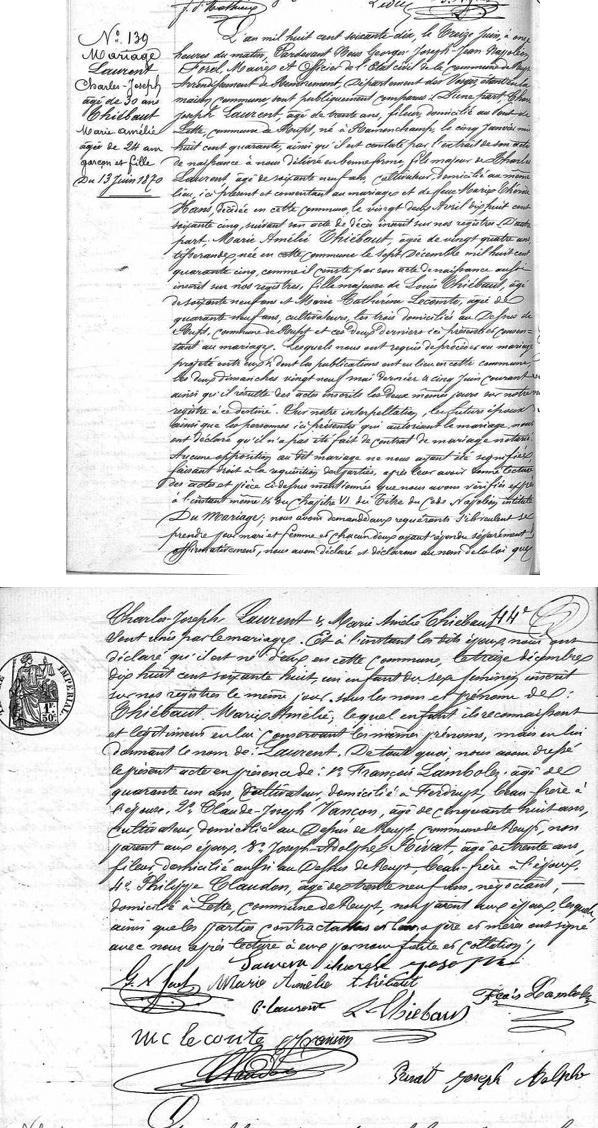 N.° 139
Mariage
Laurent
Charles-Joseph
âgé de 30 ans
Thiébaut
Marie Amélie
âgée de 24 ans
garçon et fille
Du 13 Juin 1870
L'an mil huit cent soixante dix, le Treize Juin, à onze
heures du matin, Pardevant Nous Georges Joseph Jean Napoléon
Forel, Maire et Officier de l'État civil de la commune de
arrondissement de Remiremont, Département des Vosges, étant en la
maison commune, sont publiquement comparus : D'une part,
Joseph Laurent, âgé de trente ans, fileur, domicilié au Pont de
Lette, commune de Rupt, né à Ramonchamp, le cinq Janvier mil
huit cent quarante, ainsi qu'il est constaté par l'extrait de son acte
de naissance à nous délivré en bonne forme, fils majeur de Charles
Laurent âgé de soixante neuf ans, cultivateur, domicilié au même
lieu, ici présent et consentant au mariage, et de feue Marie Thérèse
Hans, décédée en cette commune, le vingt deux Avril dix huit cent
soixante cinq, suivant son acte de décès inscrit sur nos registres. D'autre
part, Marie Amélie Thiébaut, âgée de vingt quatre ans,
tisserande, née en cette commune le sept Décembre mil huit cent
quarante cinq, comme il conste par son acte de naissance aussi
inscrit sur nos registres, fille majeure de Louis Thiébaut, âgé
de soixante neuf ans et Marie Catherine Lecomte, âgée de
quarante neuf ans, cultivateurs, les trois domiciliés au Dessus de
Rupt, commune de Rupt et ces deux derniers ici présents et consen-
tant au mariage. Lesquels nous ont requis de procéder au mariage
projeté entre eux & dont les publications ont eu lieu en cette commune,
les deux dimanches vingt neuf mai dernier & cinq Juin courant
ainsi qu'il résulte des actes inscrits les deux mêmes jours sur notre
registre à ce destiné. Sur notre interpellation, les futurs époux
ainsi que les personnes ici présentes qui autorisent le mariage, nous
ont déclaré qu'il n'a pas été fait de contrat de mariage notarié.
Aucune opposition au dit mariage ne nous ayant été signifiée
faisant droit à la réquisition des parties, après leur avoir donné lecture
des actes et pièce ci-dessus mentionnés que nous avons vérifiés
à l'instant même & du Chapitre VI du Titre du Code Napoléon, intitulé
Du Mariage ; nous avons demandé aux requérants s'ils veulent se
prendre pour mari et femme et chacun d'eux ayant répondu séparément &
affirmativement, nous avons déclaré et déclarons au nom de la loi que
Charles-Joseph Laurent & Marie Amélie Thiébaut
sont unis par le mariage. Et à l'instant les dits époux nous ont
déclaré qu'il est né d'eux en cette commune, le treize décembre
dix huit cent soixante huit, un enfant du sexe féminin, inscrit
sur nos registres le même jour sous les nom et prénoms de :
Thiébaut Marie Amélie, lequel enfant ils reconnaissent
et légitiment en lui conservant les mêmes prénoms, mais en lui
donnant le nom de Laurent. De tout quoi, nous avons dressé
le présent acte en présence de : 1° François Lambolez, âgé de
quarante un ans, cultivateur, domicilié à Ferdrupt, beau-frère à
l'épouse. 2° Claude-Joseph Vançon, âgé de cinquante huit ans,
cultivateur, domicilié au Dessus de Rupt commune de Rupt, non
parent aux époux. 3° Joseph-Adolphe Rivat, âgé de trente ans,
fileur, domicilié aussi au Dessus de Rupt, beau-frère à l'époux.
4° Philippe Claudon, âgé de trente neuf ans, négociant,
domicilié à Lette, commune de Rupt, non parent aux époux, lesquels,
ainsi que les parties contractantes et leurs père et mères ont signé
avec nous après lecture à eux par nous faite et collation
Laurent charele yosephe
G. N. Forel Marie Amélie thiébaut
C. Laurent L. Thiébaut
Fçois Lambolez
M C lecomte
Claudon
Joseph Adolphe
IMPÉRIAL
1F
50c